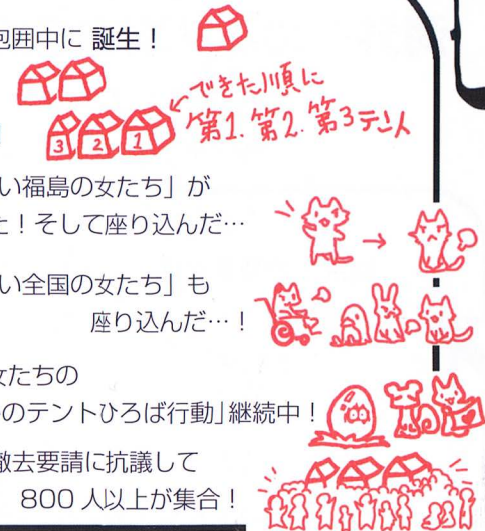 包囲中に 誕生！
できた順に
第1. 第2. 第3テント
3 2 1
い福島の女たち」が
！そして座り込んだ…
い全国の女たち」も
座り込んだ…！
女たちの
のテントひろば行動」継続中！
撤去要請に抗議して
800 人以上が集合！